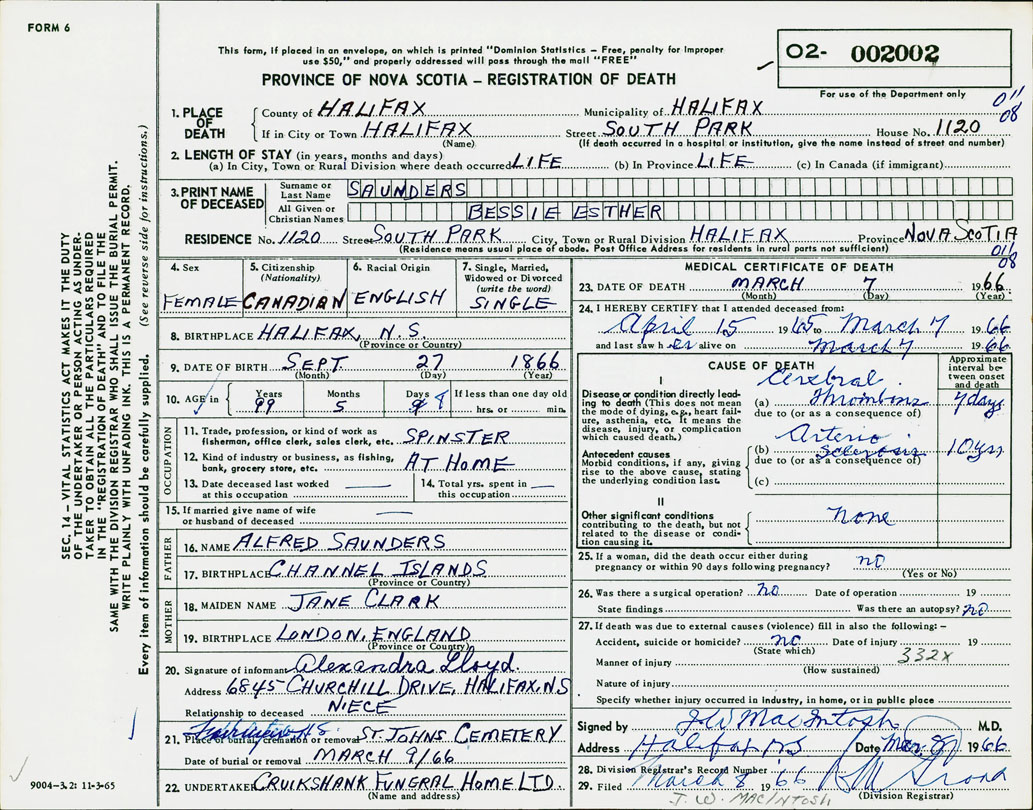 FORM 6
This form, if placed in an envelope, on which is printed "Dominion Statistics – Free, penalty for improper
use $50," and properly addressed will pass through the mail "FREE"
PROVINCE OF NOVA SCOTIA – REGISTRATION OF DEATH
02- 002002
For use of the Department only
011
08
1. PLACE OF DEATH
County of HALIFAX Municipality of HALIFAX
If in City or Town HALIFAX Street SOUTH PARK House No. 1120
(Name) (If death occurred in a hospital or institution, give the name instead of street and number)
2. LENGTH OF STAY (in years, months and days)
(a) In City, Town or Rural Division where death occurred LIFE (b) In Province LIFE (c) In Canada (if immigrant)
3. PRINT NAME OF DECEASED
Surname or Last Name SAUNDERS
All Given or Christian Names BESSIE ESTHER
RESIDENCE No. 1120 Street SOUTH PARK City, Town or Rural Division HALIFAX Province NOVA SCOTIA
(Residence means usual place of abode. Post Office Address for residents in rural parts not sufficient)
011
08
4. Sex
FEMALE
5. Citizenship (Nationality)
CANADIAN
6. Racial Origin
ENGLISH
7. Single, Married, Widowed or Divorced (write the word)
SINGLE
8. BIRTHPLACE HALIFAX, N.S.
(Province or Country)
9. DATE OF BIRTH SEPT. 27 1866
(Month) (Day) (Year)
10. AGE in Years Months Days If less than one day old
99 5 8 hrs. or min.
OCCUPATION
11. Trade, profession, or kind of work as
fisherman, office clerk, sales clerk, etc. SPINSTER
12. Kind of industry or business, as fishing,
bank, grocery store, etc. AT HOME
13. Date deceased last worked
at this occupation
14. Total yrs. spent in
this occupation
15. If married give name of wife
or husband of deceased
FATHER
16. NAME ALFRED SAUNDERS
17. BIRTHPLACE CHANNEL ISLANDS
(Province or Country)
MOTHER
18. MAIDEN NAME JANE CLARK
19. BIRTHPLACE LONDON, ENGLAND
(Province or Country)
20. Signature of informant Alexandra Lloyd.
Address 6845 CHURCHILL DRIVE, HALIFAX, N.S
Relationship to deceased NIECE
21. Place of burial, cremation or removal ST JOHNS CEMETERY
Date of burial or removal MARCH 9/66
22. UNDERTAKER CRUIKSHANK FUNERAL HOME LTD.
(Name and address)
MEDICAL CERTIFICATE OF DEATH
23. DATE OF DEATH MARCH 7 1966
(Month) (Day) (Year)
24. I HEREBY CERTIFY that I attended deceased from:
April 15 1965 to March 7 1966
and last saw her alive on March 7 1966
CAUSE OF DEATH
Approximate interval between onset and death
I
Disease or condition directly leading to death (This does not mean the mode of dying, e.g., heart failure, asthenia, etc. It means the disease, injury, or complication which caused death.)
(a) Cerebral Thrombosis 7 days
due to (or as a consequence of)
Antecedent causes
Morbid conditions, if any, giving rise to the above cause, stating the underlying condition last.
(b) Arterio sclerosis 10 yrs
due to (or as a consequence of)
(c)
II
Other significant conditions
contributing to the death, but not related to the disease or condition causing it.
none
25. If a woman, did the death occur either during
pregnancy or within 90 days following pregnancy? no
(Yes or No)
26. Was there a surgical operation? no Date of operation 19
State findings Was there an autopsy? no
27. If death was due to external causes (violence) fill in also the following:–
Accident, suicide or homicide? no Date of injury 19
(State which) 332X
Manner of injury
(How sustained)
Nature of injury
Specify whether injury occurred in industry, in home, or in public place
Signed by J W MacIntosh M.D.
Address Halifax NS Date Mar 8 1966
28. Division Registrar's Record Number
29. Filed March 8 1966
(Division Registrar)
J. W. MACINTOSH
SEC. 14 – VITAL STATISTICS ACT MAKES IT THE DUTY
OF THE UNDERTAKER OR PERSON ACTING AS UNDER-
TAKER TO OBTAIN ALL THE PARTICULARS REQUIRED
IN THE "REGISTRATION OF DEATH" AND TO FILE THE
SAME WITH THE DIVISION REGISTRAR WHO SHALL ISSUE THE BURIAL PERMIT.
WRITE PLAINLY WITH UNFADING INK. THIS IS A PERMANENT RECORD.
Every item of information should be carefully supplied. (See reverse side for instructions.)
9004–3.2: 11-3-65